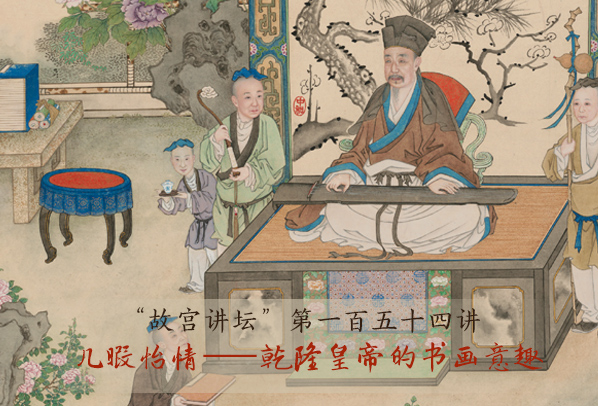 “故宫讲坛”第一百五十四讲
几暇怡情——乾隆皇帝的书画意趣